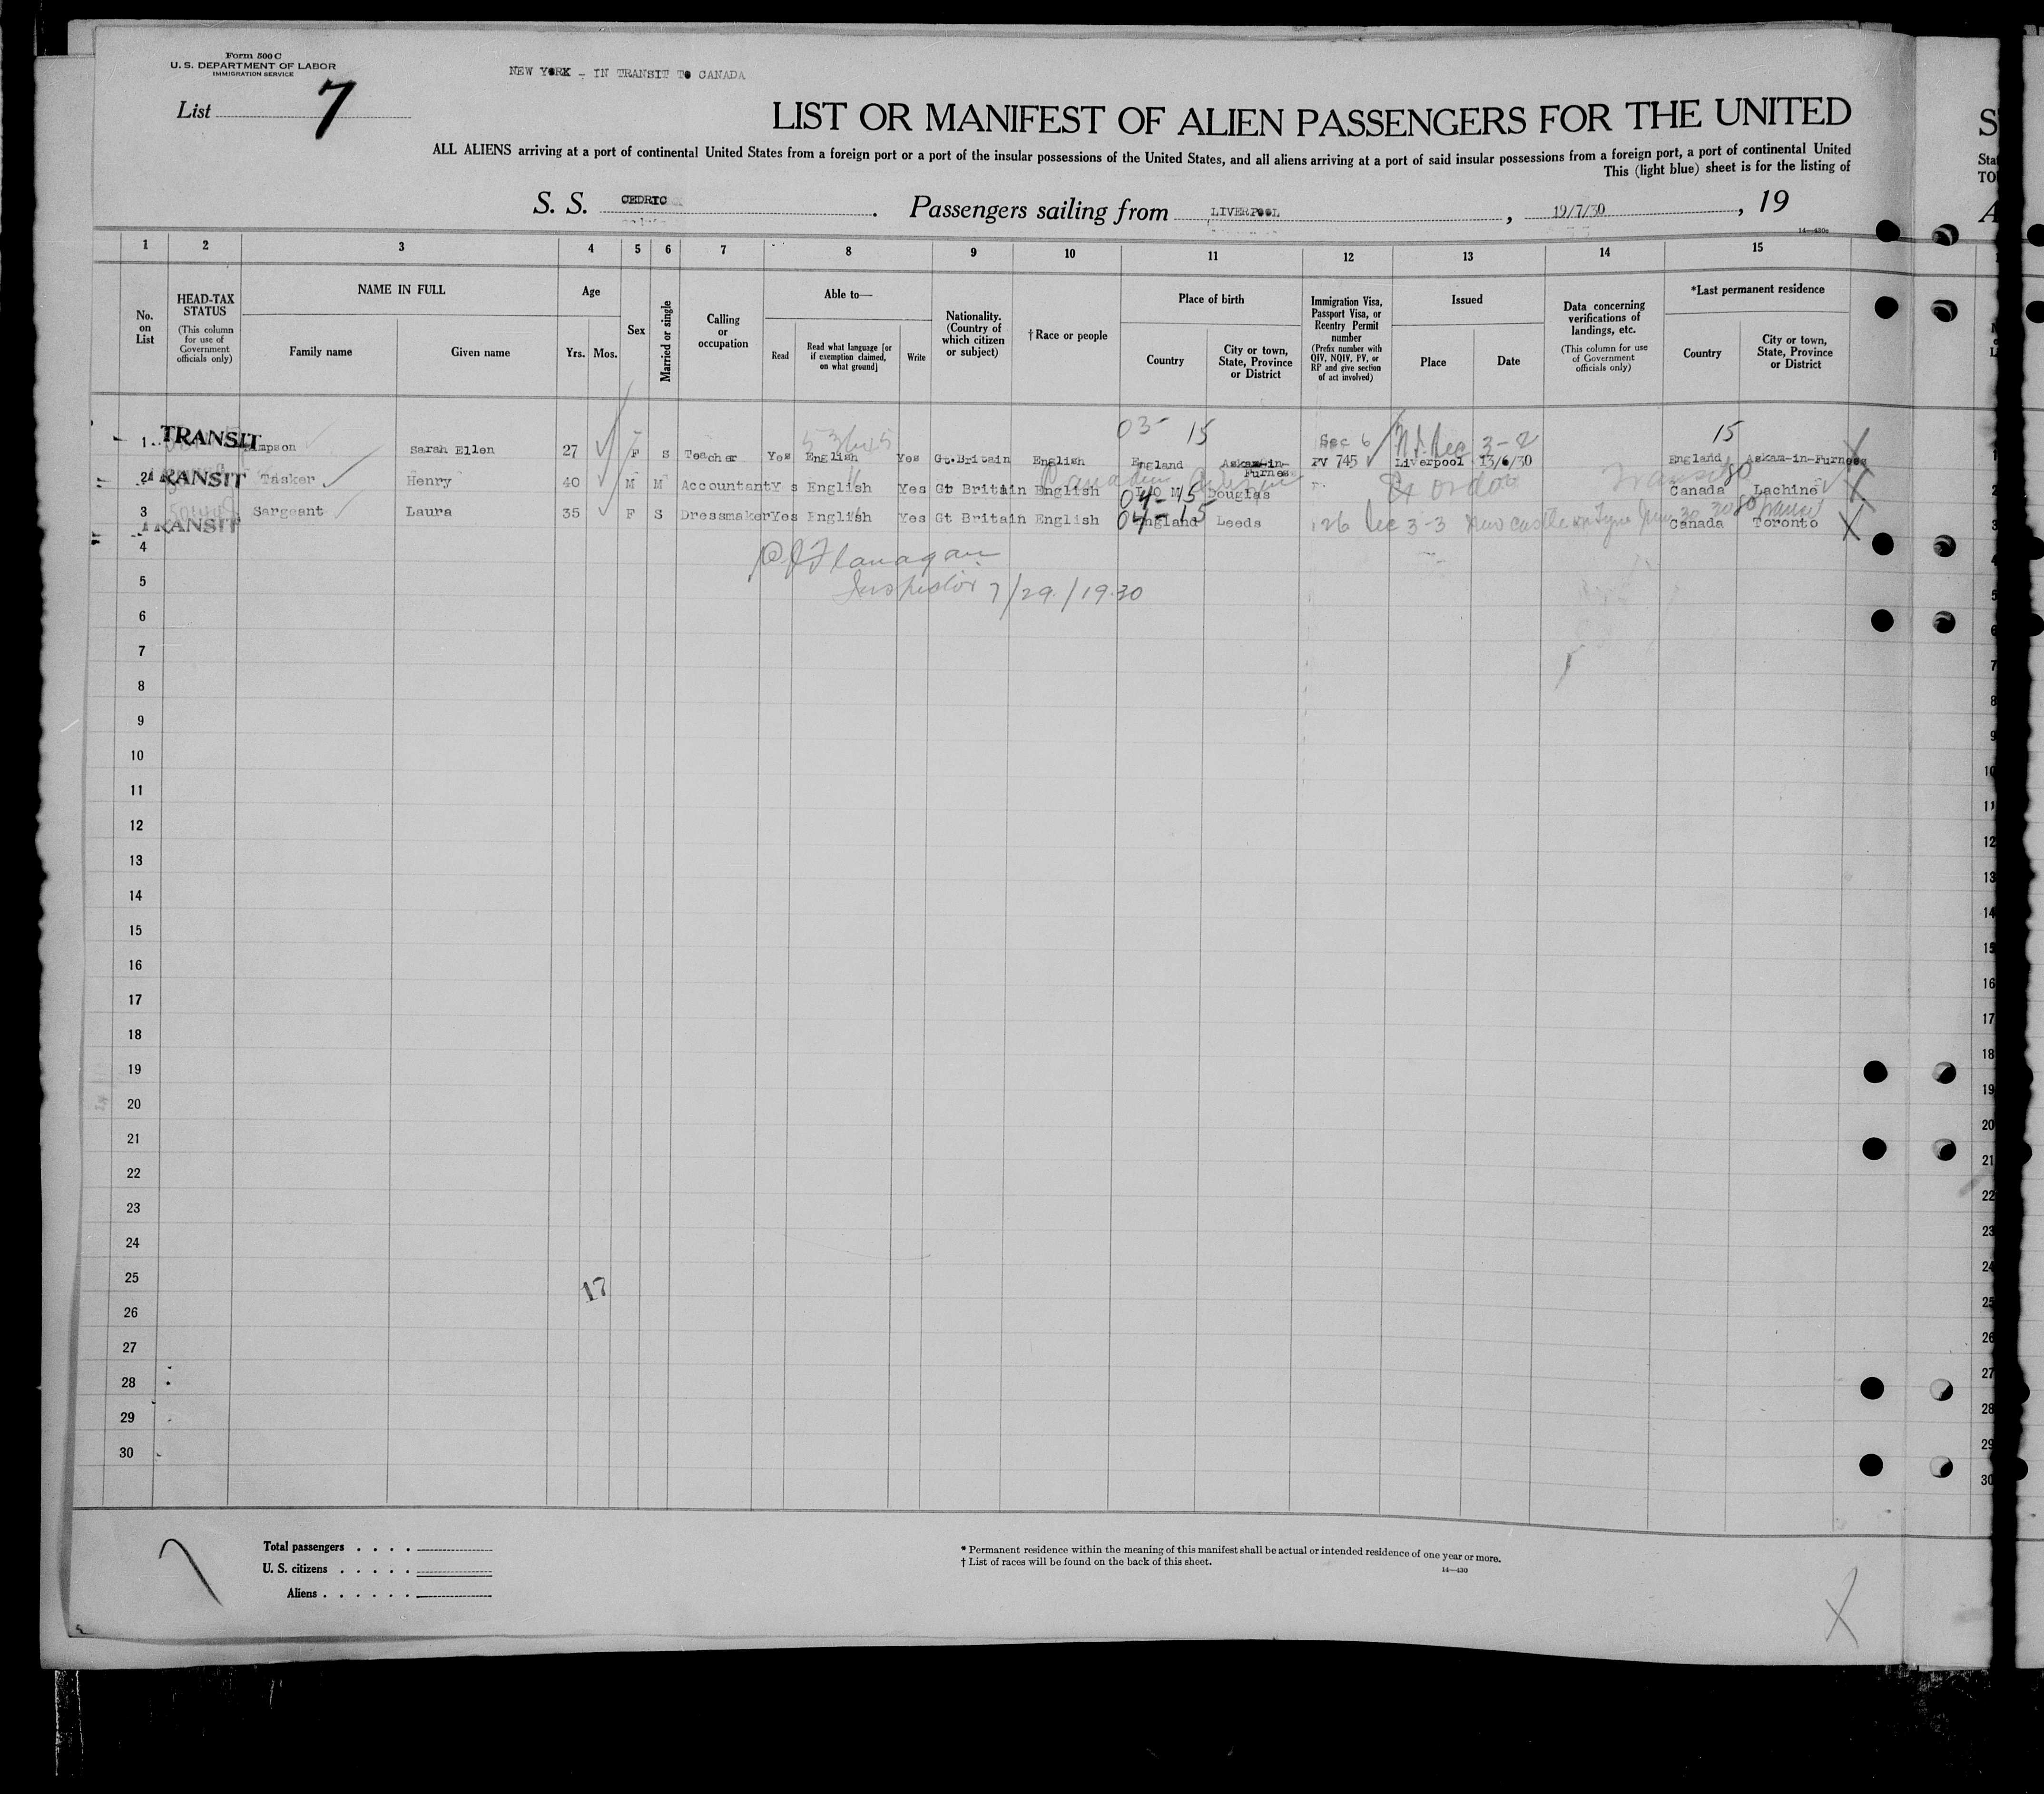 Form 500 C
U. S. DEPARTMENT OF LABOR
IMMIGRATION SERVICE
NEW YORK - IN TRANSIT TO CANADA
List 7
LIST OR MANIFEST OF ALIEN PASSENGERS FOR THE UNITED
ALL ALIENS arriving at a port of continental United States from a foreign port or a port of the insular possessions of the United States, and all aliens arriving at a port of said insular possessions from a foreign port, a port of continental United
This (light blue) sheet is for the listing of
S. S. CEDRIC. Passengers sailing from LIVERPOOL, 19/7/30, 19
14—430c
1 2 3 4 5 6 7 8 9 10 11 12 13 14 15
No. on List
HEAD-TAX STATUS
(This column for use of Government officials only)
NAME IN FULL
Family name Given name
Age
Yrs. Mos.
Sex
Married or single
Calling or occupation
Able to—
Read
Read what language [or if exemption claimed, on what ground]
Write
Nationality. (Country of which citizen or subject)
†Race or people
Place of birth
Country
City or town, State, Province or District
Immigration Visa, Passport Visa, or Reentry Permit number
(Prefix number with QIV, NQIV, PV, or RP and give section of act involved)
Issued
Place Date
Data concerning verifications of landings, etc.
(This column for use of Government officials only)
*Last permanent residence
Country
City or town, State, Province or District
03- 15 15
Sec 6 3-2
1 TRANSIT mpson Sarah Ellen 27 F S Teacher Yes English Yes Gt.Britain English England Askam-in-Furness PV 745 Liverpool 13/6/30 England Askam-in-Furness
2 TRANSIT Tasker Henry 40 M M Accountant Y s English Yes Gt Britain English I O M Douglas Transit 80 Canada Lachine
04-15
3 TRANSIT Sargeant Laura 35 F S Dressmaker Yes English Yes Gt Britain English England Leeds 126 Sec 3-3 Newcastle on Tyne Canada Toronto
04-15
4
Flanagan
Inspector 7/29/1930
5
6
7
8
9
10
11
12
13
14
15
16
17
18
19
20
21
22
23
24
25
17
26
27
28
29
30
Total passengers
U. S. citizens
Aliens
* Permanent residence within the meaning of this manifest shall be actual or intended residence of one year or more.
† List of races will be found on the back of this sheet.
14—430